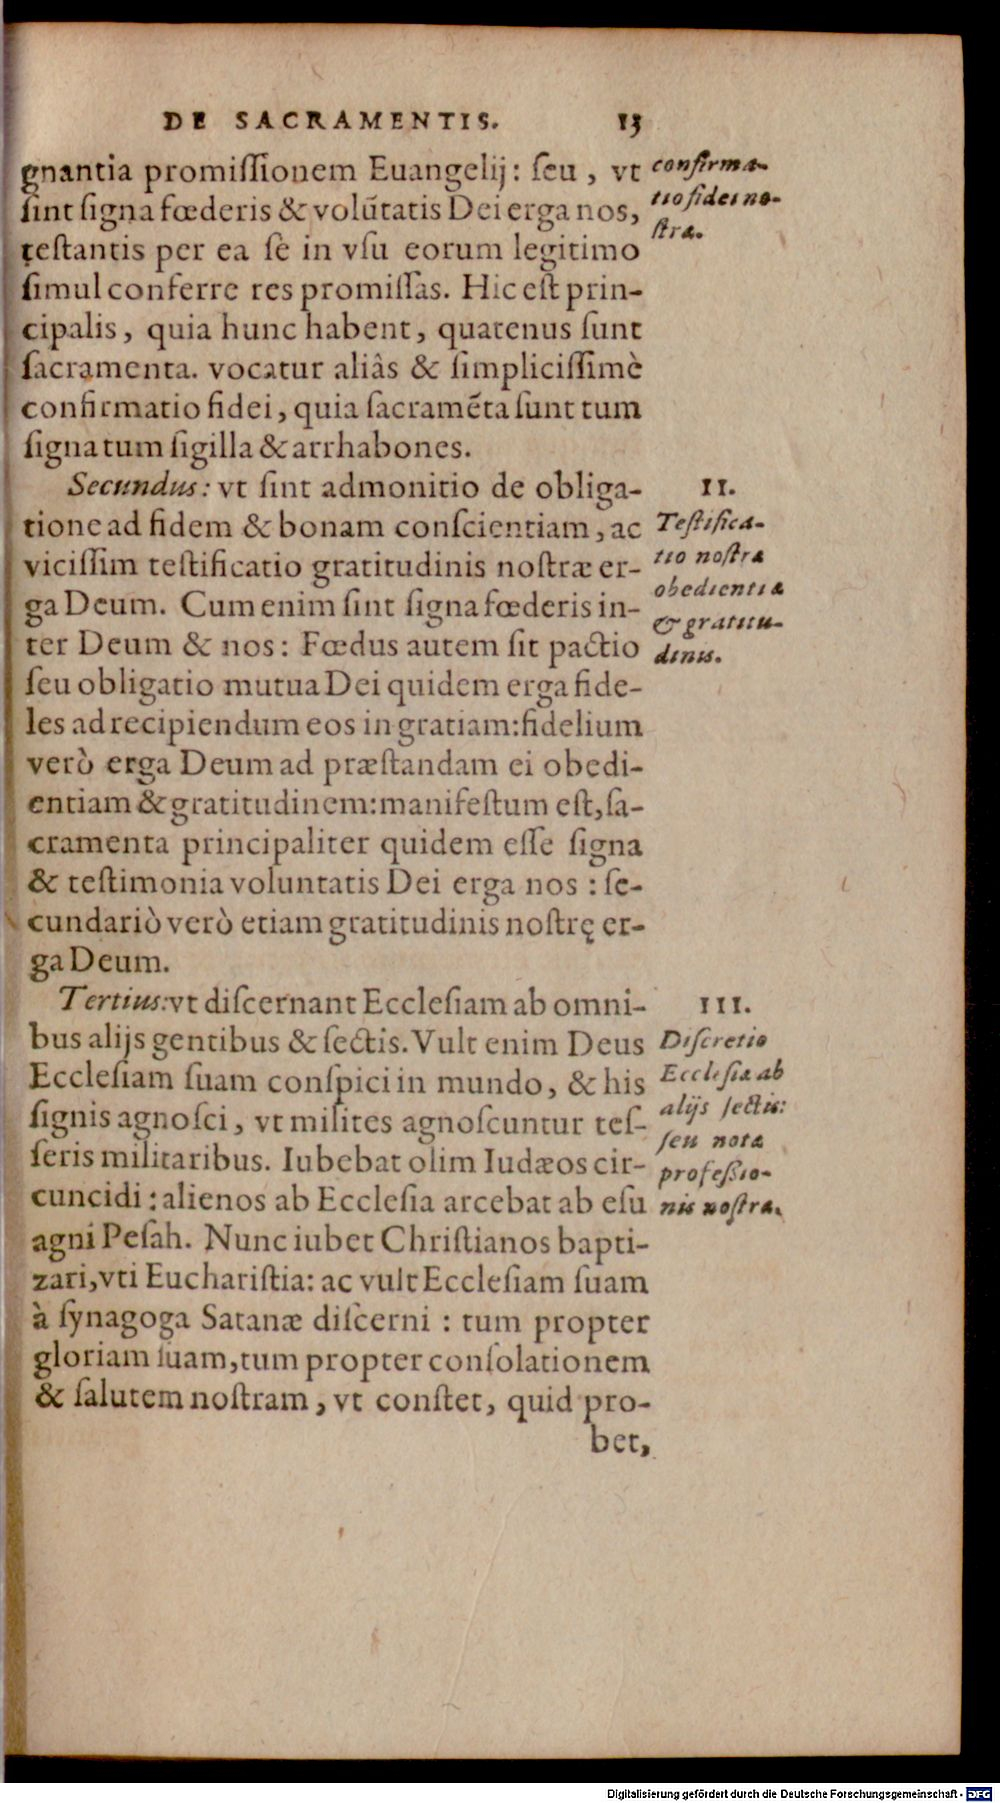 DE SACRAMENTIS. 13
gnantia promiſſionem Euangelij: ſeu, vt
ſint ſigna fœderis & volūtatis Dei erga nos,
teſtantis per ea ſe in vſu eorum legitimo
ſimul conferre res promiſſas. Hic eſt prin-
cipalis, quia hunc habent, quatenus ſunt
ſacramenta. vocatur aliâs & ſimpliciſſimè
confirmatio fidei, quia ſacramēta ſunt tum
ſigna tum ſigilla & arrhabones.
confirma-
tio fidei no-
ſtra.
Secundus: vt ſint admonitio de obliga-
tione ad fidem & bonam conſcientiam, ac
viciſſim teſtificatio gratitudinis noſtræ er-
ga Deum. Cum enim ſint ſigna fœderis in-
ter Deum & nos: Fœdus autem ſit pactio
ſeu obligatio mutua Dei quidem erga fide-
les ad recipiendum eos in gratiam: fidelium
verò erga Deum ad præſtandam ei obedi-
entiam & gratitudinem: manifeſtum eſt, ſa-
cramenta principaliter quidem eſſe ſigna
& teſtimonia voluntatis Dei erga nos: ſe-
cundariò verò etiam gratitudinis noſtrę er-
ga Deum.
II.
Teſtifica-
tio noſtra
obedientia
& gratitu-
dinis.
Tertius: vt diſcernant Eccleſiam ab omni-
bus alijs gentibus & ſectis. Vult enim Deus
Eccleſiam ſuam conſpici in mundo, & his
ſignis agnoſci, vt milites agnoſcuntur teſ-
ſeris militaribus. Iubebat olim Iudæos cir-
cuncidi: alienos ab Eccleſia arcebat ab eſu
agni Peſah. Nunc iubet Chriſtianos bapti-
zari, vti Euchariſtia: ac vult Eccleſiam ſuam
à ſynagoga Satanæ diſcerni: tum propter
gloriam ſuam, tum propter conſolationem
& ſalutem noſtram, vt conſtet, quid pro-
bet,
III.
Diſcretio
Eccleſia ab
alijs ſectis:
ſeu nota
profeßio-
nis noſtra.
Digitalisierung gefördert durch die Deutsche Forschungsgemeinschaft - DFG